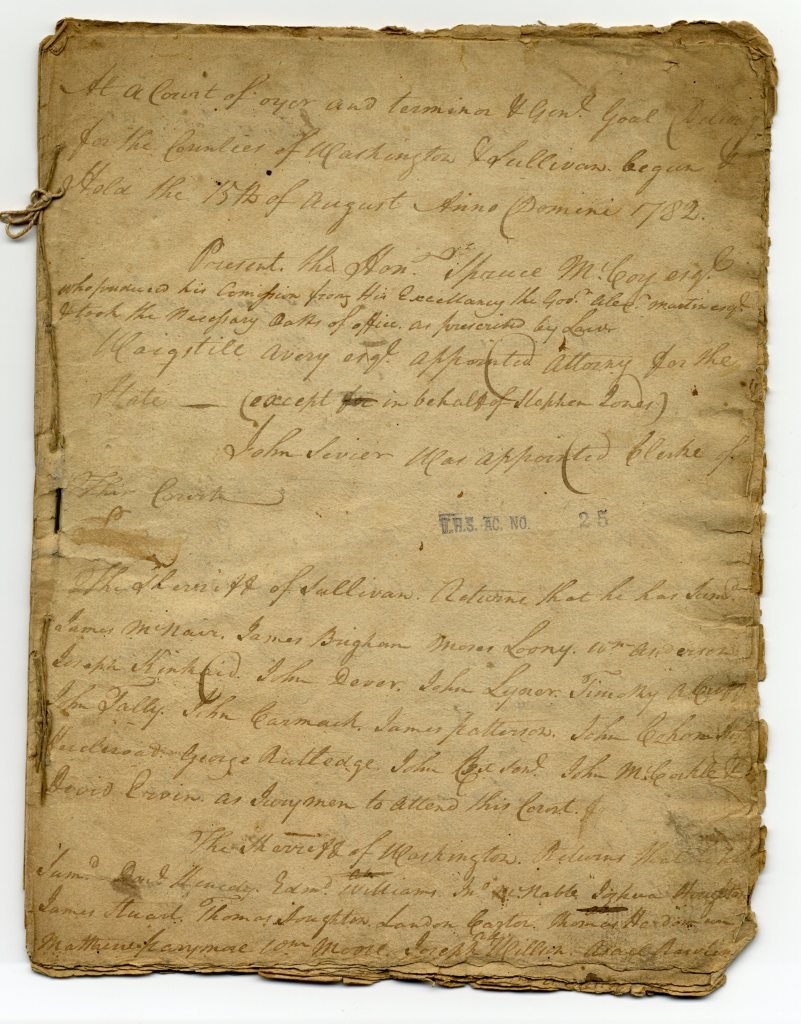 At a Court of oyer and terminor & Genl. Goal
for the Counties of Washington & Sullivan. begun &
Held the 15th of August Anno Domini 1782.
Present. the Honr. Spruce McCoy esqr.
who produced his Comission from His Excellancy the Govr. Alexr. Martin esqr.
& took the Necessary Oaths of office. as prescribed by Law
Waigstill Avery esqr. appointed Attorny for the
State — (except for in behalf of Stephen Jones)
John Sevier Was appointed Clerke of
This Court
T.H.S. AC. NO. 25
The Sheriff of Sullivan. Returns that he has Sumd.
James McNair. James Brigham Moses Loony. Wm Anderson
Joseph Kinkaid. John Dever. John Lyner. Timothy
Jhn Tally. John Carmack. James patterson. John
George Rutledge. John Cox Senr. John McCorkle &
David Ervin. as Jurymen to attend this Court.
The Sherriff of Washington. Returns that
Sumd. Edmd. Williams. Jno. McNabb
James Stuart. Thomas Houghton. Landon Carter. Thomas
Wm Joseph Willson. Asael